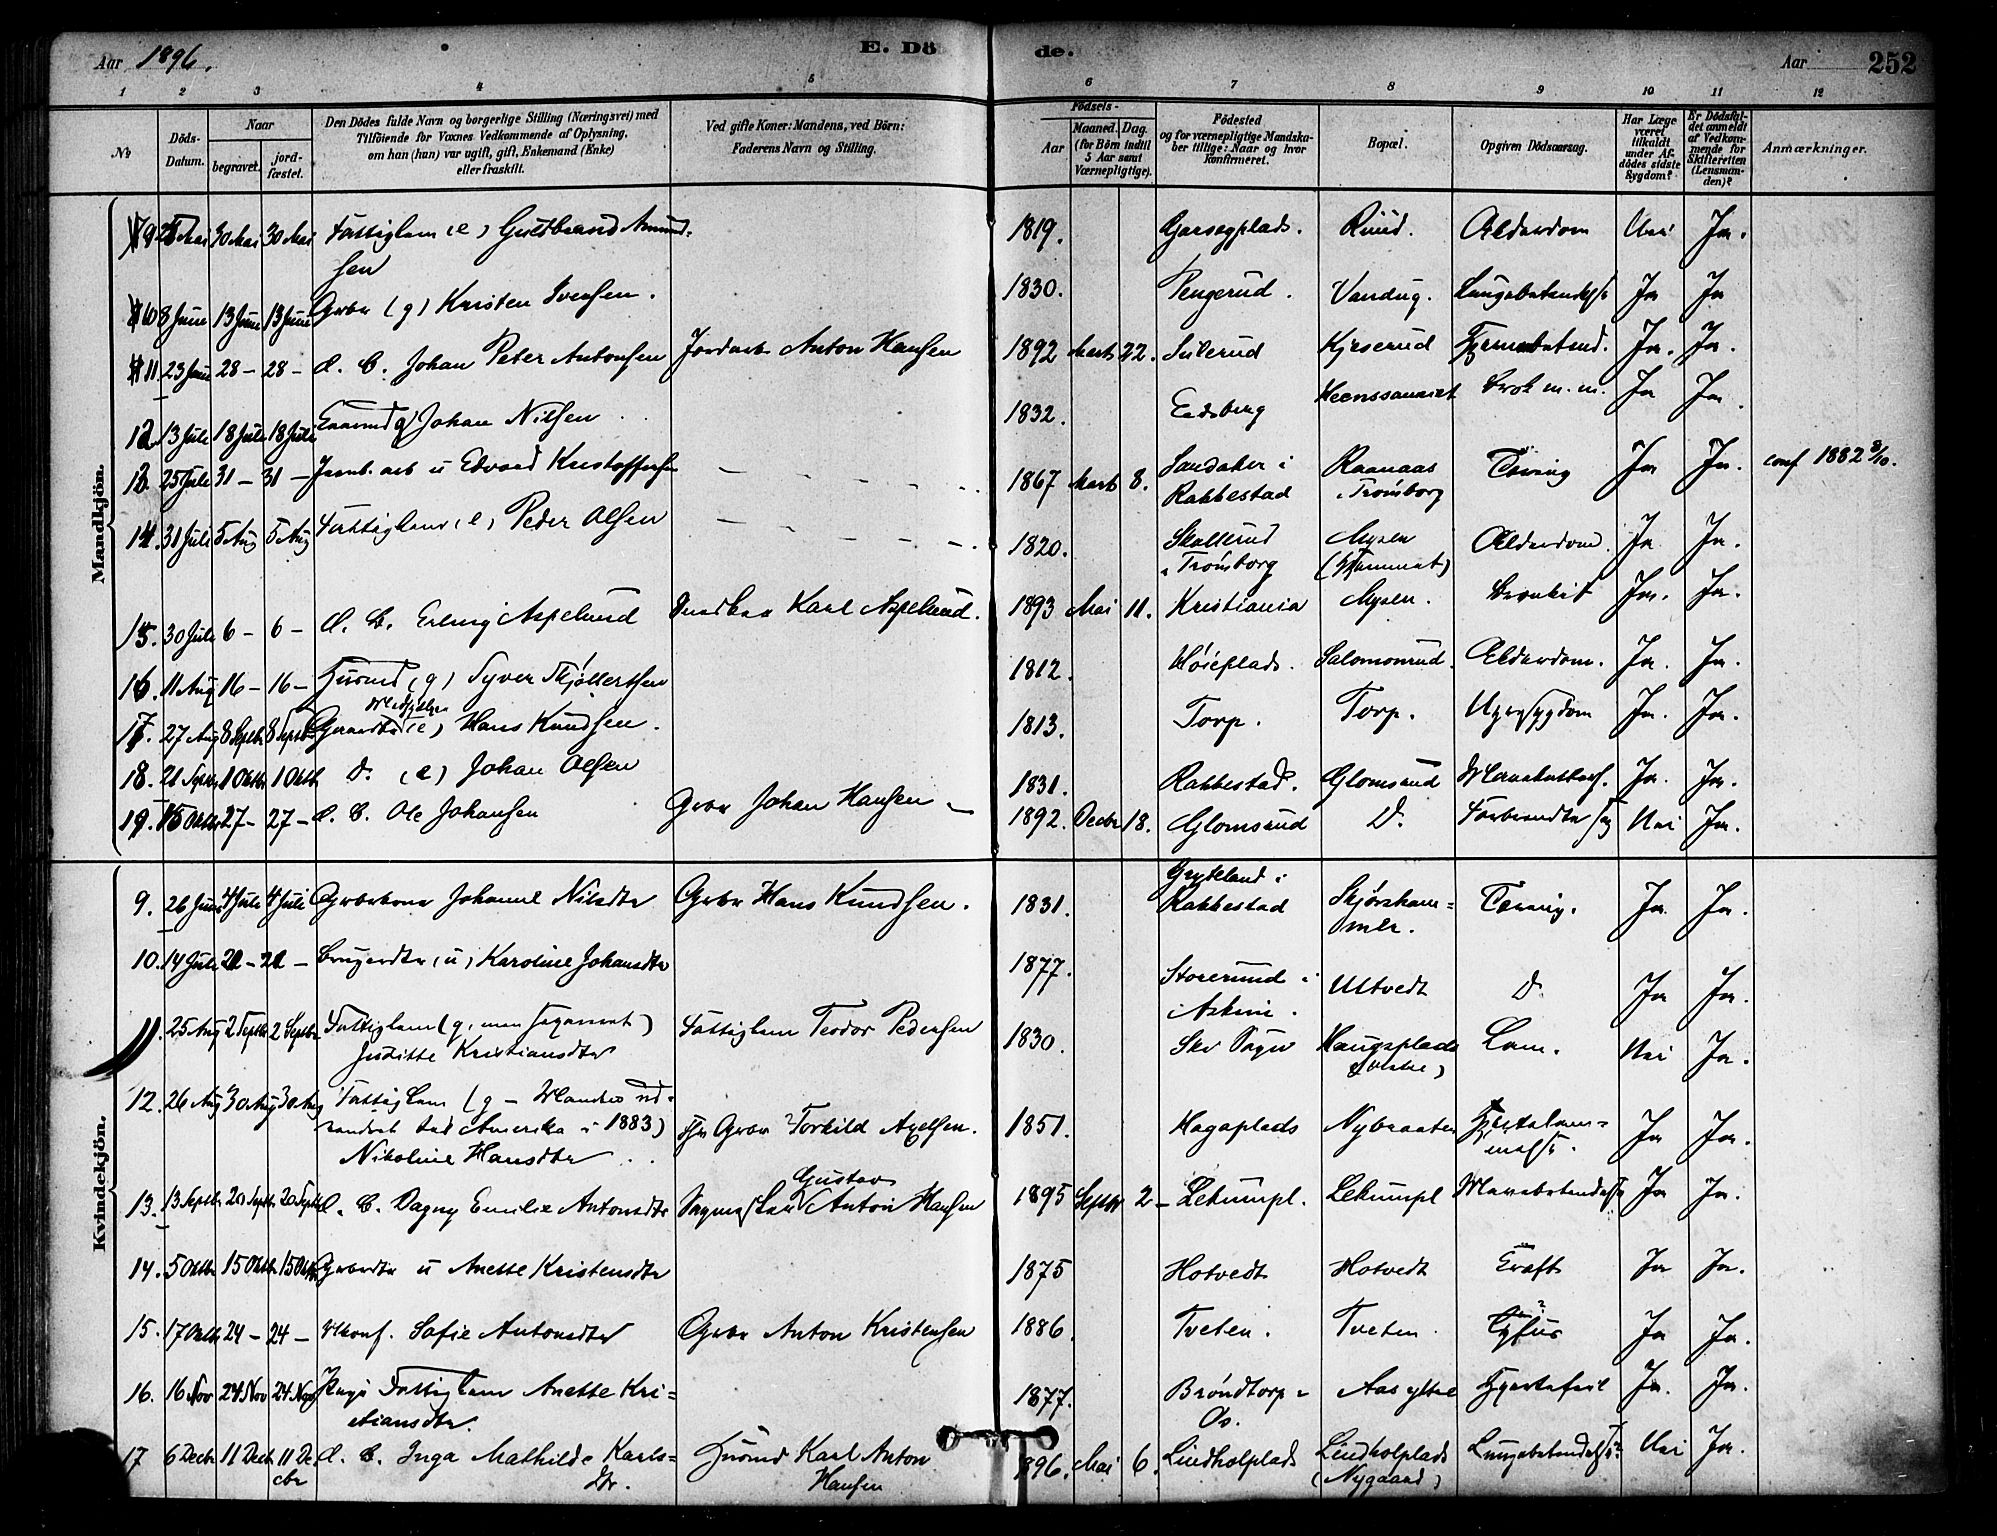 Aar 1896. E. Dö de. Aar 252
1 2 3 4 5 6 7 8 9 10 11 12
No
Döds-Datum.
Naar
begravet.
jord-fæstet.
Den Dödes fulde Navn og borgerlige Stilling (Næringsvei) med
Tilföiende for Voxnes Vedkommende af Oplysning,
om han (hun) var ugift, gift, Enkemand (Enke)
eller fraskilt.
Ved gifte Koner: Mandens, ved Börn:
Faderens Navn og Stilling.
Födsels-
Aar
Maaned. Dag.
(for Börn indtil
5 Aar samt
Værnepligtige).
Födested
og for værnepligtige Mandska-
ber tillige: Naar og hvor
konfirmeret.
Bopæl.
Opgiven Dödsaarsag.
Har Læge
været
tilkaldt
under Af-
dödes sidste
Sygdom?
Er Dödsfal-
det anmeldt
af Vedkom-
mende for
Skifteretten
(Lensman-
den)?
Anmærkninger.
Mandkjön.
9 Mai 30 Mai 30 Mai Fattiglem (e) Guldbrand Amund- 1819. Ruud. Alderdom Nei Ja.
sen
10 8 Juni 13 Juni 13 Juni Grbr (g) Kristen Iversen. 1830. Pengerud. Vandug. Ja Ja
11 23 Juni 28 – 28 – d. B. Johan Peter Antonsen Jordarb Anton Hansen 1892 Marts 22. Kjeserud Ja. Ja.
12 13 Juli 18 Juli 18 Juli g Johan Nilsen 1832. Eidsberg Brok m. m. Ja Ja.
13. 25 Juli 31 – 31 – Jernb. arb u Edvard Kristoffersen 1867 Marts 8. Sandaker i Raanaas Tæring Ja Ja. conf 1882 8/10.
Rakkestad i Trömborg
14. 31 Juli 5 Aug 5 Aug Fattiglem (e) Peder Olsen 1820. Skallerud Mysen Alderdom. Ja Ja.
i Trömborg
15. 30 Juli 6 – 6 – d. B. Erling Aspelund Karl Aspelund. 1893 Mai 11. Kristiania Mysen. Ja. Ja.
16. 11 Aug 16 – 16 – Husmd (g) Syver 1812. Höieplads. Salomonrud. Alderdom. Ja. Ja.
17. 27 Aug 8 Septbr 8 Septbr (e) Hans Knudsen. 1813. Torp. Torp. Ja. Ja.
18. 21 Septbr 1 Oktbr 1 Oktb D. (e) Johan Olsen 1831. Rakkestad. Glomsrud Ja. Ja.
19. 15 Oktbr 27 – 27 – d. B. Ole Johansen Grbr Johan Hansen 1892. Decbr 18. Glomsrud D. Nei Ja.
Kvindekjön.
9. 26 Juni 4 Juli 4 Juli Grbrkone Johanne Nilsdtr Grbr Hans Knudsen. 1831. Rakkestad Skjörsham= Tæring. Ja. Ja.
mer.
10. 14 Juli 21 – 21 – (u) Karoline Johansdtr 1877. Storerud i Ultvedt D. Ja Ja.
Askim.
11. 25 Aug 2 Septbr 2 Septbr Fattiglem (g, men separeret) Fattiglem Teodor Pedersen 1830. Haugsplads Lam. Nei Ja.
Juditte Kristiansdtr
12. 26 Aug 30 Aug 30 Aug Fattiglem (g – Manden ud-
vandret til Amerika i 1883) Grbr Torkild Axelsen. 1851. Hagaplads Nybraaten Ja Ja.
Nikoline Hansdtr
13. 13 Septbr 20 Septbr 20 Septbr d. B. Dagny Emilie Antonsdtr Gustav Anton Hansen 1895 Septbr 2 – Lekumpl. Lekumpl Ja Ja.
14. 5 Oktbr 15 Oktbr 15 Oktbr Grbrdtr u Anette Kristensdtr 1875 Hotvedt Hotvedt Kræft Ja Ja.
15. 17 Oktbr 24 – 24 – Ukonf. Sofie Antonsdtr Grbr Anton Kristensen 1886 Tveten. Tveten. Tyfus ? Ja Ja.
16. 16 Nov 24 Nov 24 Nov Pige Fattiglem Anette Kri= 1877. Bröndtorp i Aas yttre Hjertefeil Ja. Ja.
stiansdtr. Ös.
17 6 Decbr 11 Decbr 11 De d. B. Inga Mathilde Karls= Husmd Karl Anton 1896. Mai 6. Lindholplads Lindholplads Nei Ja.
cbr dtr. Hansen (Nygaard)